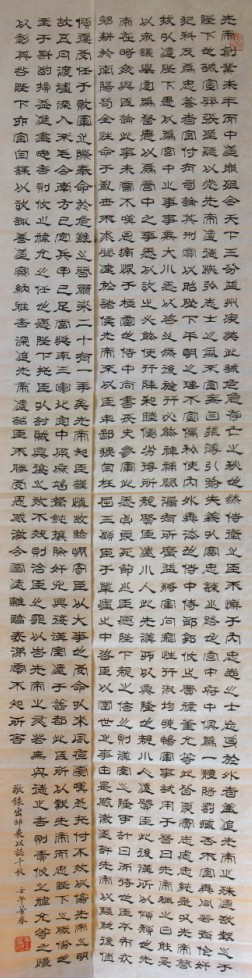 先帝創業未半而中道崩殂今天下三分益州疲弊此誠危急存亡之秋也然侍衛之臣不懈於內忠志之士忘身於外者蓋追先帝之殊遇欲報之於
陛下也誠宜開張聖聽以光先帝遺德恢弘志士之氣不宜妄自菲薄引喻失義以塞忠諫之路也宮中府中俱為一體陟罰臧否不宜異同若有作
奸犯科及為忠善者宜付有司論其刑賞以昭陛下平明之理不宜偏私使內外異法也侍中侍郎郭攸之費禕董允等此皆良實志慮忠純是以先帝簡
拔以遺陛下愚以為宮中之事事無大小悉以咨之然後施行必能裨補闕漏有所廣益將軍向寵性行淑均曉暢軍事試用於昔日先帝稱之曰能是
以眾議舉寵為督愚以為營中之事悉以咨之必能使行陣和睦優劣得所親賢臣遠小人此先漢所以興隆也親小人遠賢臣此後漢所以傾頹也先
帝在時每與臣論此事未嘗不歎息痛恨於桓靈也侍中尚書長史參軍此悉貞良死節之臣願陛下親之信之則漢室之隆可計日而待也臣本布衣
躬耕於南陽苟全性命於亂世不求聞達於諸侯先帝不以臣卑鄙猥自枉屈三顧臣於草廬之中咨臣以當世之事由是感激遂許先帝以驅馳後值
傾覆受任於敗軍之際奉命於危難之間爾來二十有一年矣先帝知臣謹慎故臨崩寄臣以大事也受命以來夙夜憂歎恐託付不效以傷先帝之明
故五月渡瀘深入不毛今南方已定兵甲已足當獎率三軍北定中原庶竭駑鈍攘除奸凶興復漢室還于舊都此臣所以報先帝而忠陛下之職分也
至於斟酌損益進盡忠言則攸之禕允之任也願陛下託臣以討賊興復之效不效則治臣之罪以告先帝之靈若無興德之言則責攸之禕允等之慢
以彰其咎陛下亦宜自謀以諮諏善道察納雅言深追先帝遺詔臣不勝受恩感激今當遠離臨表涕零不知所言
敬錄出師表以誌千秋 壬午暮春